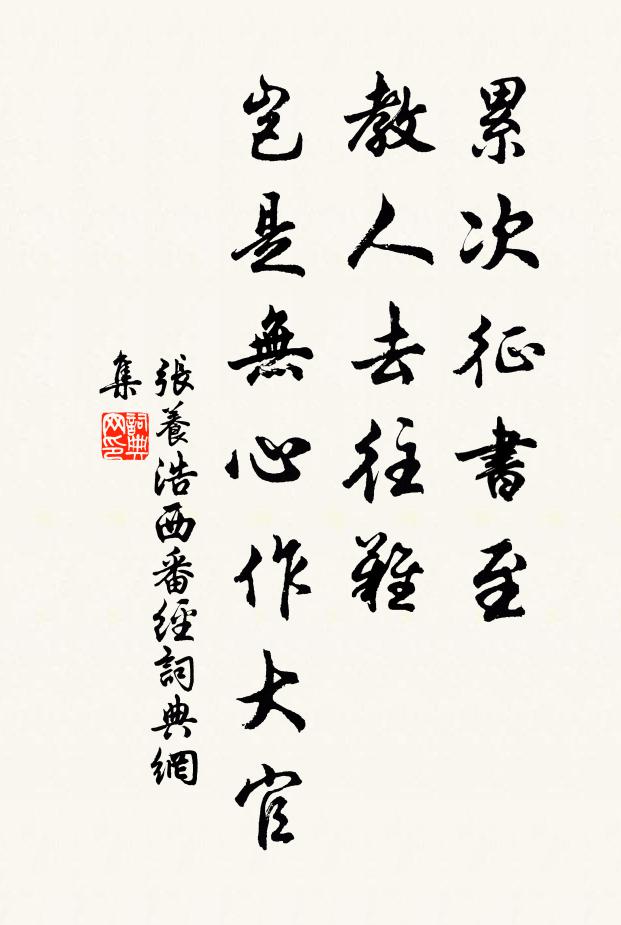 累次征書至
教人去往難
豈是無心作大官
張養浩西番經詞典網
集
詞典
网印